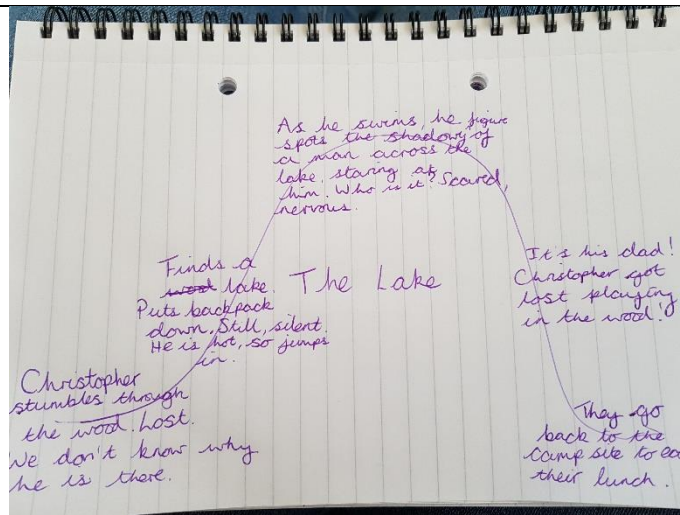 The Lake
Christopher
stumbles through
the wood. Lost.
We don't know why
he is there.
Finds a
lake.
Puts backpack
down. Still, silent.
He is hot, so jumps
in.
As he swims, he figure
spots the shadowy of
a man across the
lake, staring at
him. Who is it? Scared,
nervous.
It's his dad!
Christopher got
lost playing
in the wood!
They go
back to the
camp site to ea
their lunch.